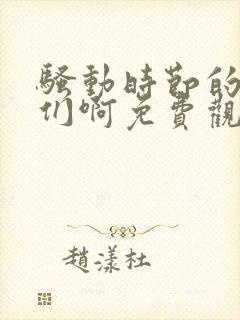 騷動時節的
们啊免費觀
趙漾杜